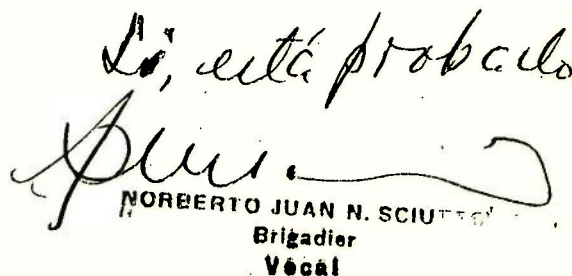 Sí, está probado
NORBERTO JUAN N. SCIUTTO
Brigadier
Vocal